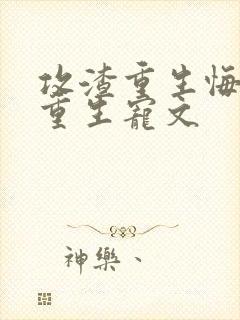 攻渣重生悔
重生寵文
神樂、